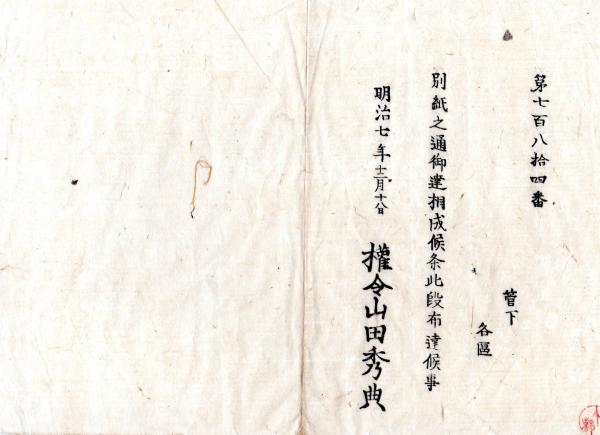 第七百八拾四番
管下
各區
別紙之通御達相成候条此段布達候事
明治七年十二月十八日
權令山田秀典